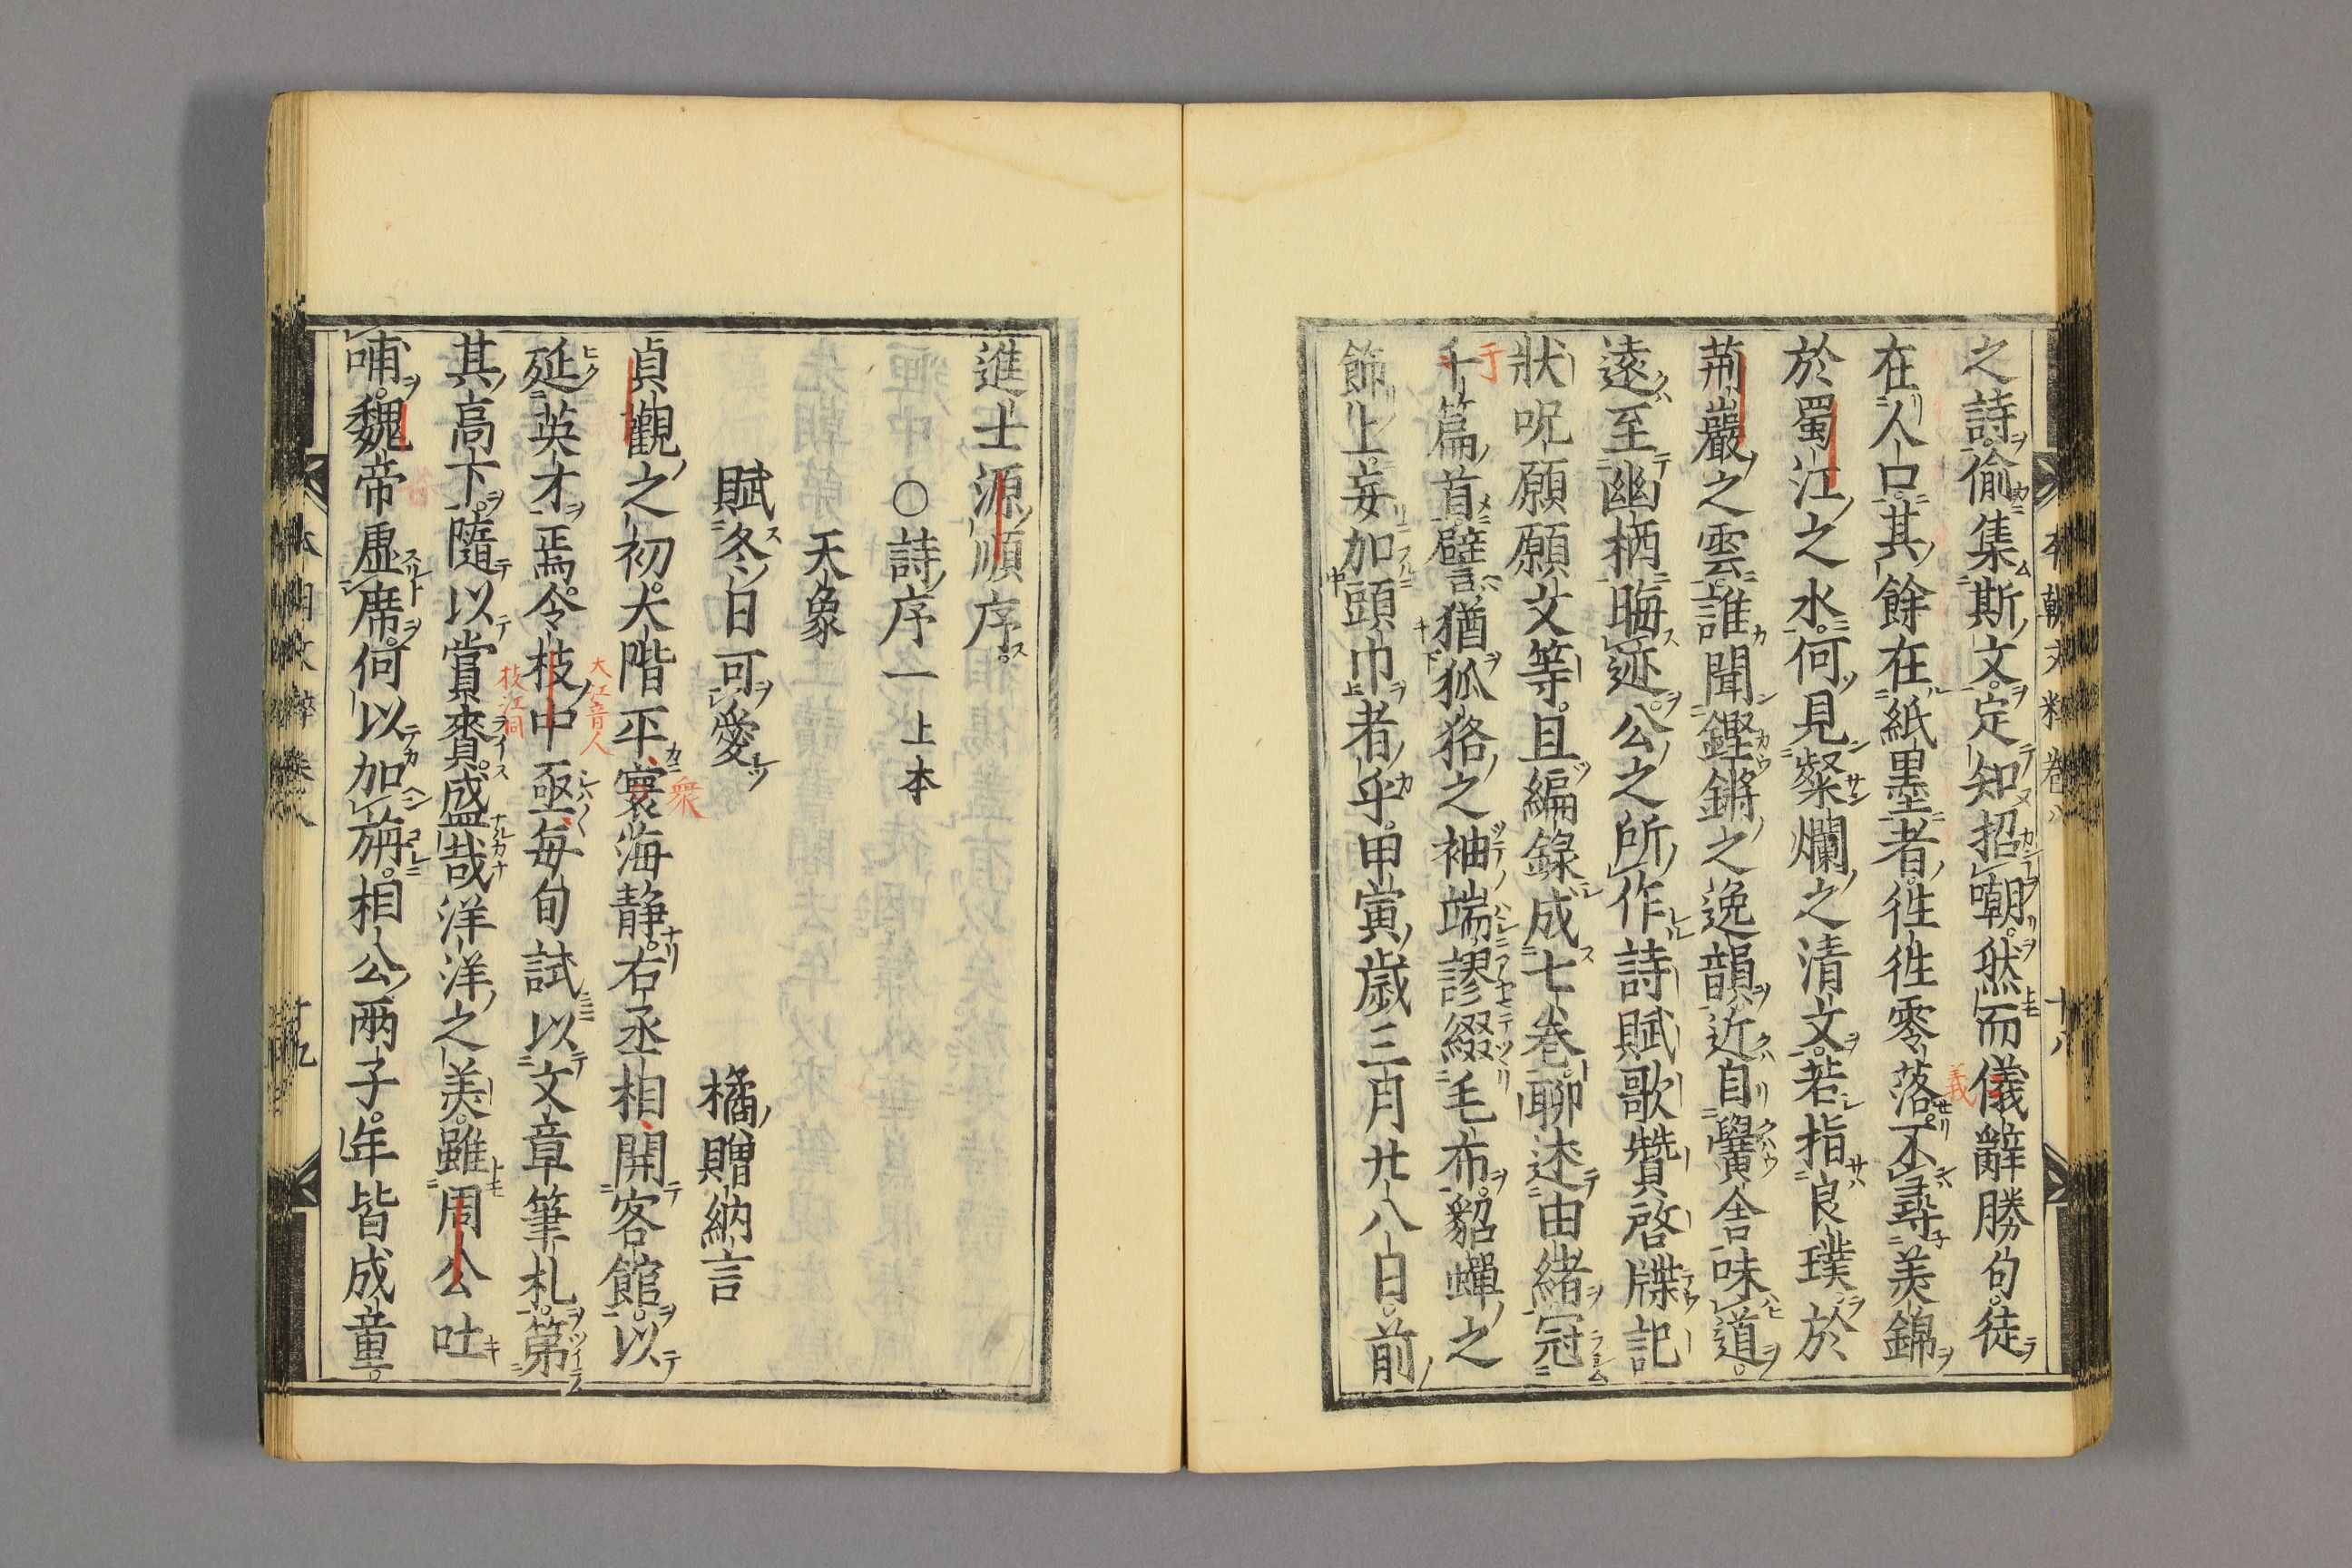 之詩。偷集斯文。定知招嘲。然而儀辭勝句。徒
在人口。其餘在紙墨者。徃徃零落。不尋美錦
於蜀江之水。何見粲爛之清文。若指良璞於
荊巖之雲。誰聞鏗鏘之逸韻。近自黌舎味道。
遠至幽栖晦迹。公之所作詩賦歌贊啓牒記
狀呪願願文等。且編錄成七巻。聊述由緒冠
千篇首。譬猶狐狢之袖端謬綴毛布。貂蟬之
飾上妄加頭巾者乎。甲寅歳三月廿八日。前
進士源順序。
〇詩序一 上本
天象
賦冬日可愛 橘贈納言
貞觀之初。大階平、寰海静。右丞相開客館。以
延英才焉。令枝中亟毎旬試以文章筆札。第
其高下。隨以賞賚。盛哉洋洋之美。雖周公吐
哺。魏帝虛席。何以加旃。相公兩子。年皆成童。
本朝文粹卷八
十八
十九
于
義
衆
大江音人
枝江洞